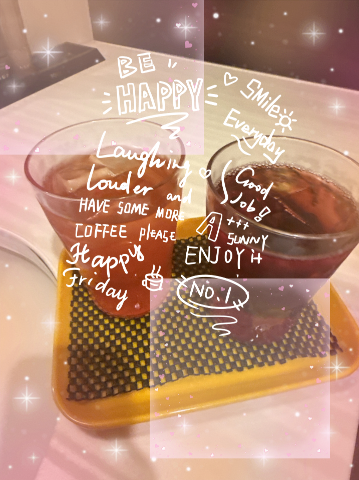 BE
HAPPY
Smile
Everyday
Laughing
Louder and
Good
Job!!
HAVE SOME MORE
COFFEE PLEASE
A
SUNNY
Happy
Friday
ENJOY
NO.1